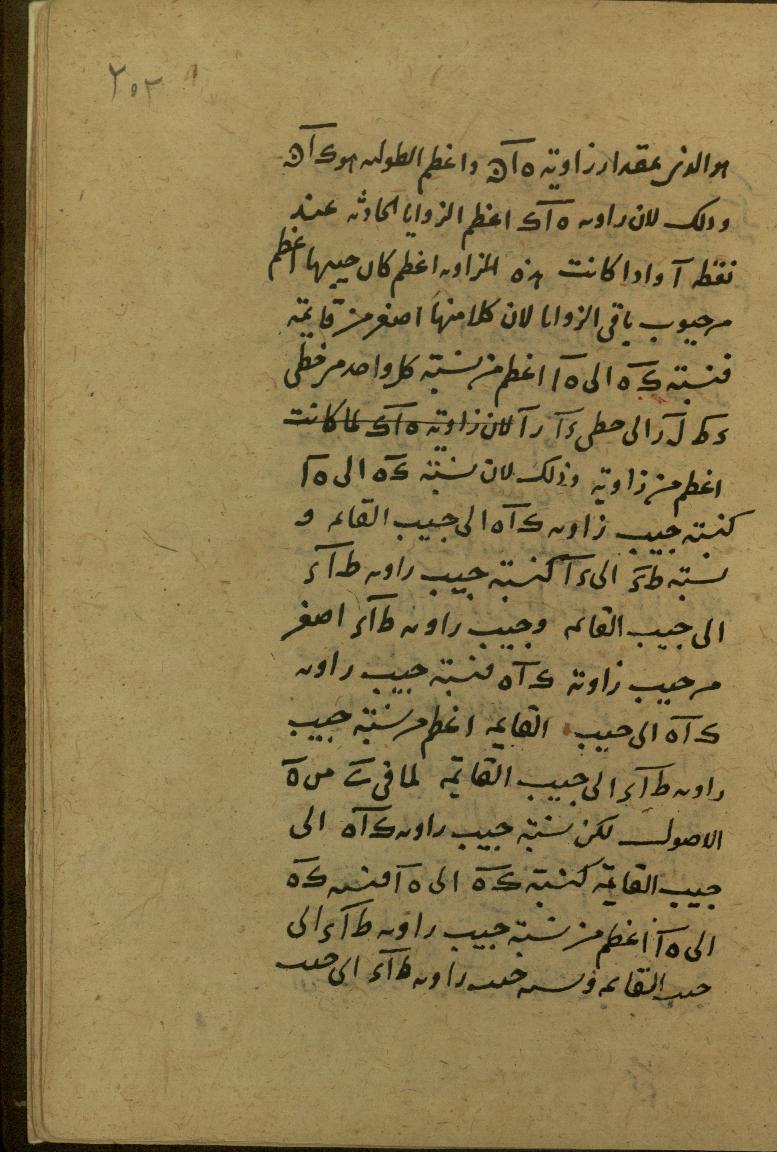 ٢٠٢
هو الذى بمقدار زاوية ه آ ن واعظم الطولين هو ك آ ن
وذلك لان زاوية ه آ ك اعظم الزوايا الحادثة عند
نقطة آ واذا كانت هذه الزاوية اعظم كان جيبها اعظم
من جيوب باقى الزوايا لان كلا منها اصغر من قايمة
فنسبة ك ه الى ه آ اعظم من نسبة كل واحد من خطى
ء ط ل ر الى خطى ء آ ر آ لان زاوية ه آ ك لما كانت
اعظم من زاوية وذلك لان نسبة ك ه الى ه آ
كنسبة جيب زاوية ك آ ه الى جيب القايمة و
نسبة ط ء الى ء آ كنسبة جيب زاوية ط آ ء
الى جيب القايمة وجيب زاوية ط آ ء اصغر
من جيب زاوية ك آ ه فنسبة جيب زاوية
ك آ ه الى جيب القايمة اعظم من نسبة جيب
زاوية ط آ ء الى جيب القايمة لما فى ح من ه
الاصول لكن نسبة جيب زاوية ك آ ه الى
جيب القايمة كنسبة ك ه الى ه آ فنسبة ك ه
الى ه آ اعظم من نسبة جيب زاوية ط آ ء الى
جيب القايمة ونسبة جيب زاوية ط آ ء الى جيب